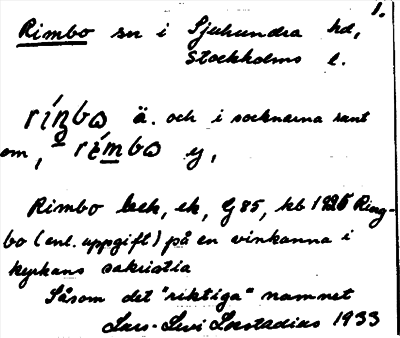 1.
Rimbo sn i Sjuhundra hd,
Stockholms l.
ríŋbω ä. och i socknarna runt
om, rémbω y,
Rimbo bek, ek, G 85, kb 1926 Ring-
bo (enl. uppgift) på en vinkanna i
kyrkans sakristia
Såsom det "riktiga" namnet
Lars-Levi Læstadius 1933